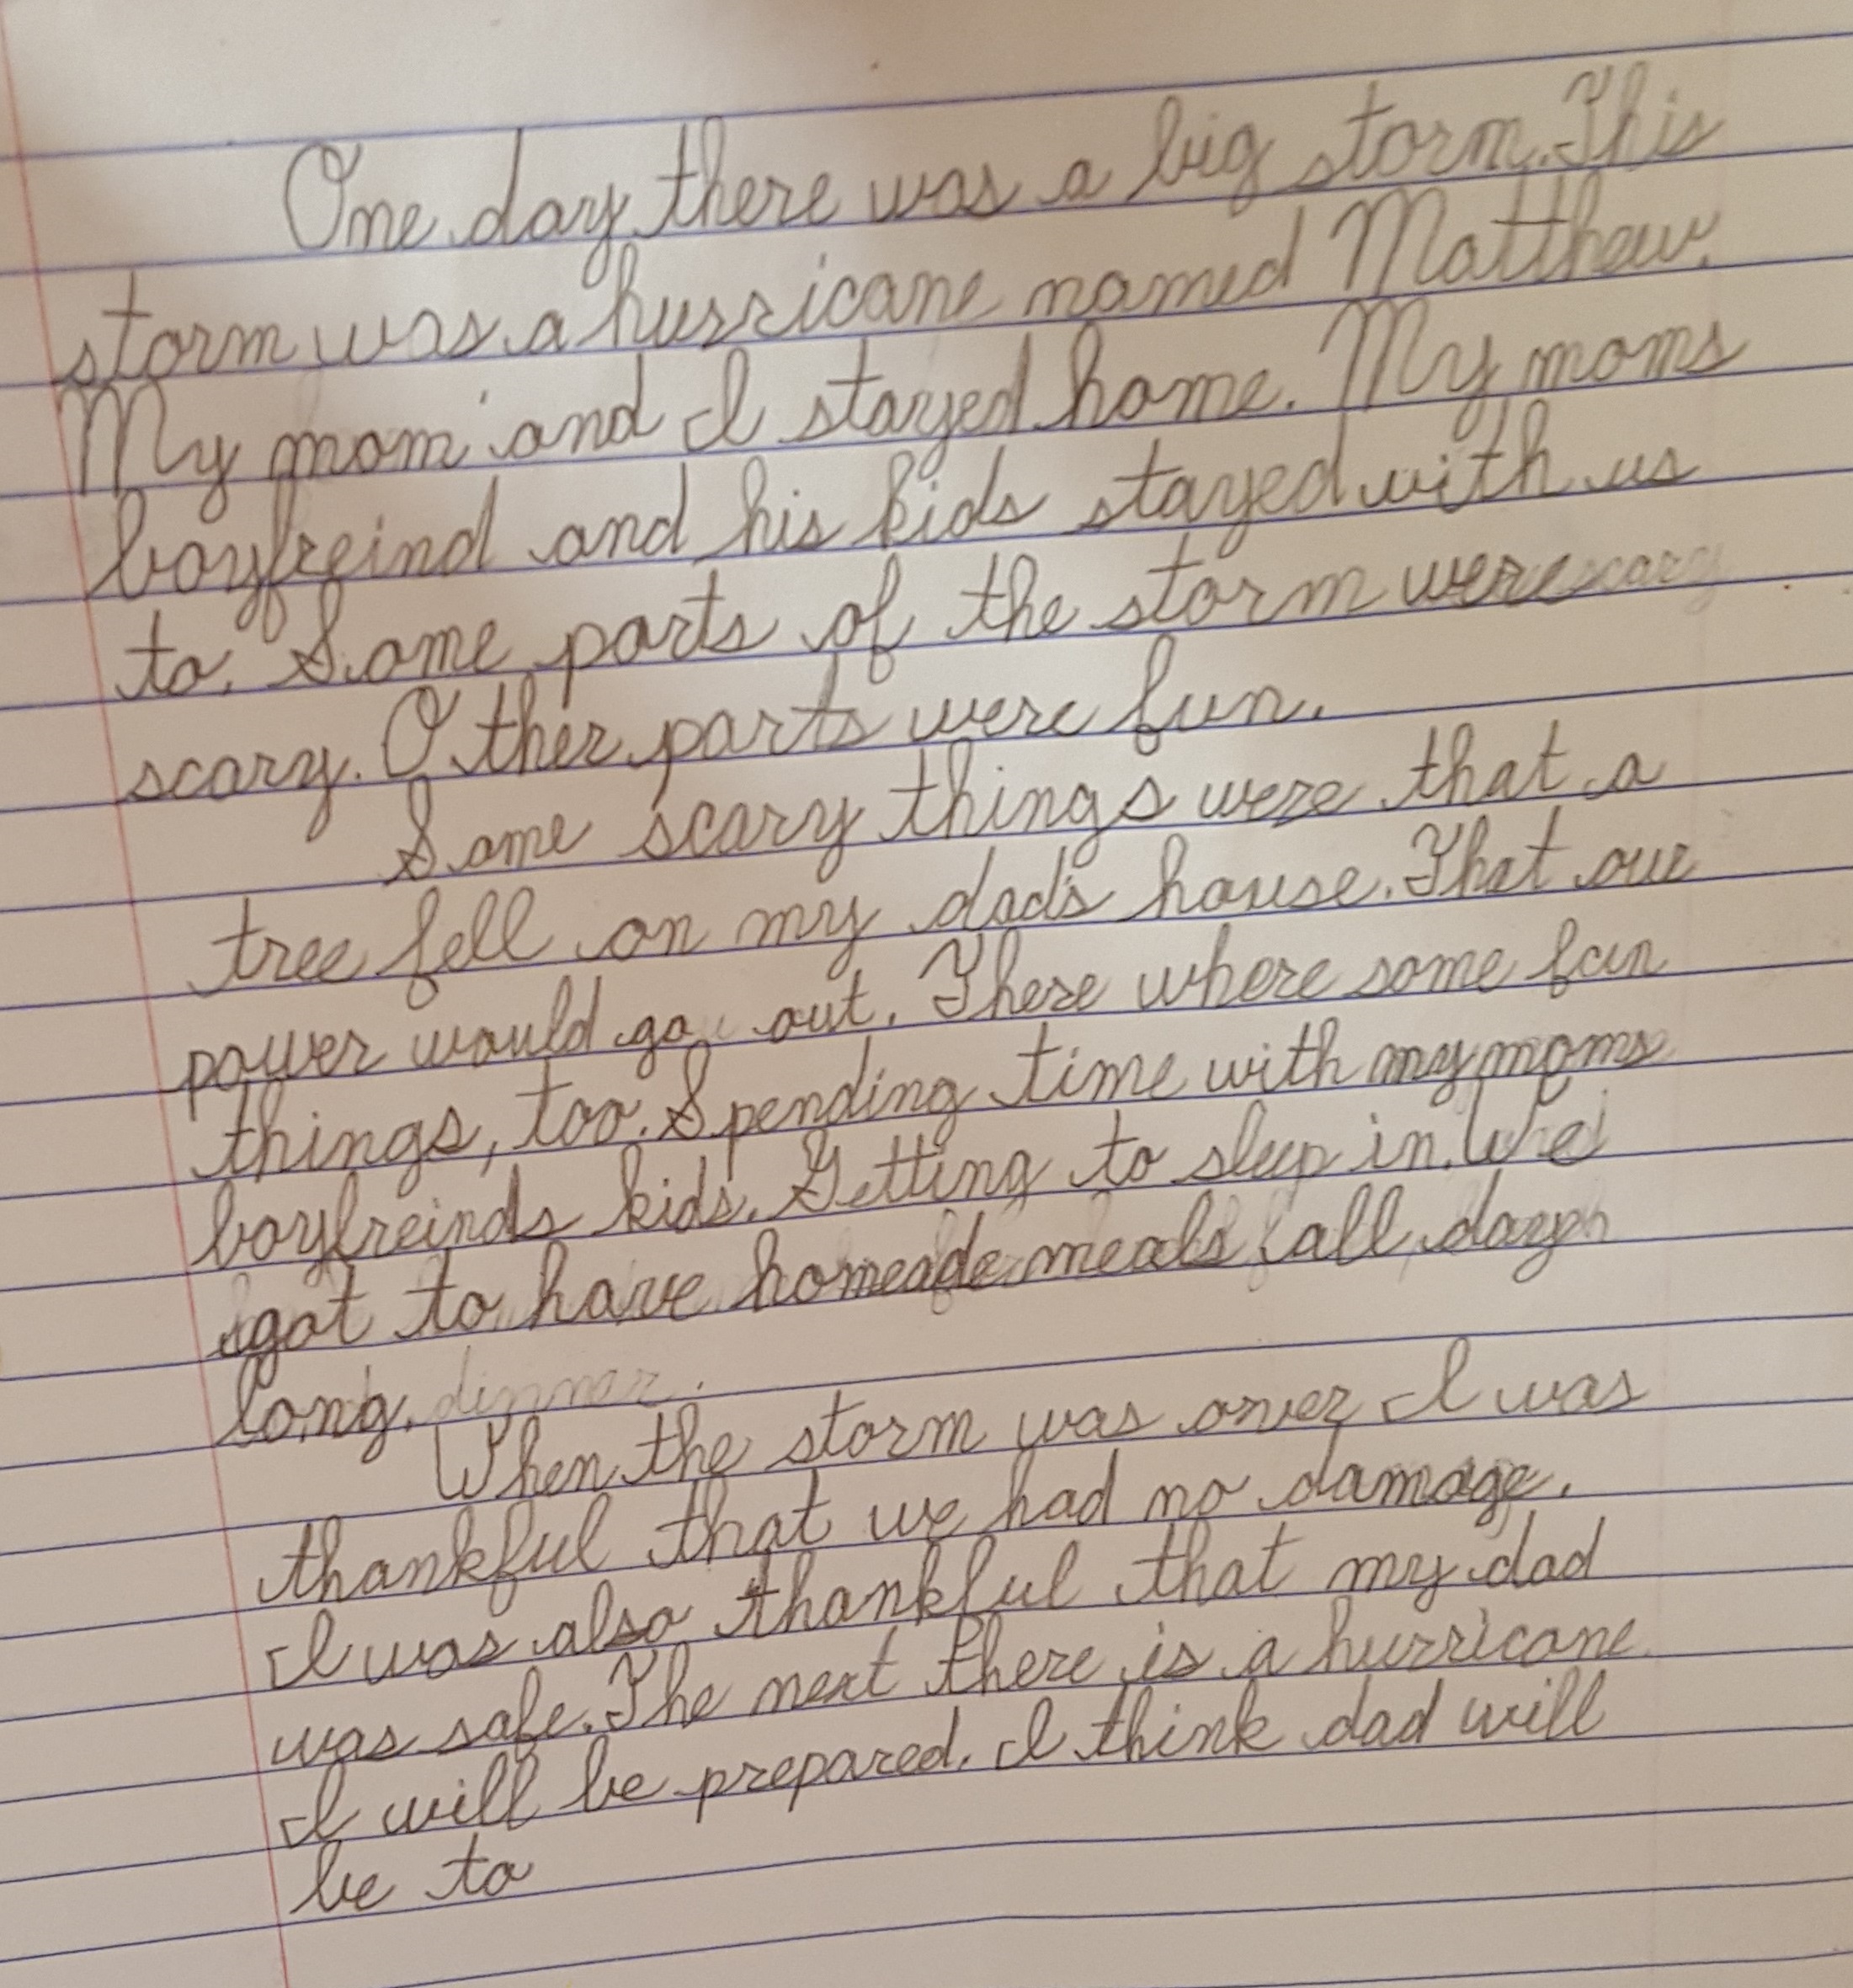 One day there was a big storm. This
storm was a hurricane named Matthew.
My mom and I stayed home. My moms
boyfreind and his kids stayed with us
to. Some parts of the storm were scary
scary. Other parts were fun.
Some scary things were that a
tree fell on my dad's house. That our
power would go out. There where some fun
things, too. Spending time with my moms
boyfreinds kids. Getting to sleep in. We
got to have homeade meals all day
long. dinner.
When the storm was over I was
thankful that we had no damage.
I was also thankful that my dad
was safe. The next there is a hurricane
I will be prepared. I think dad will
be to